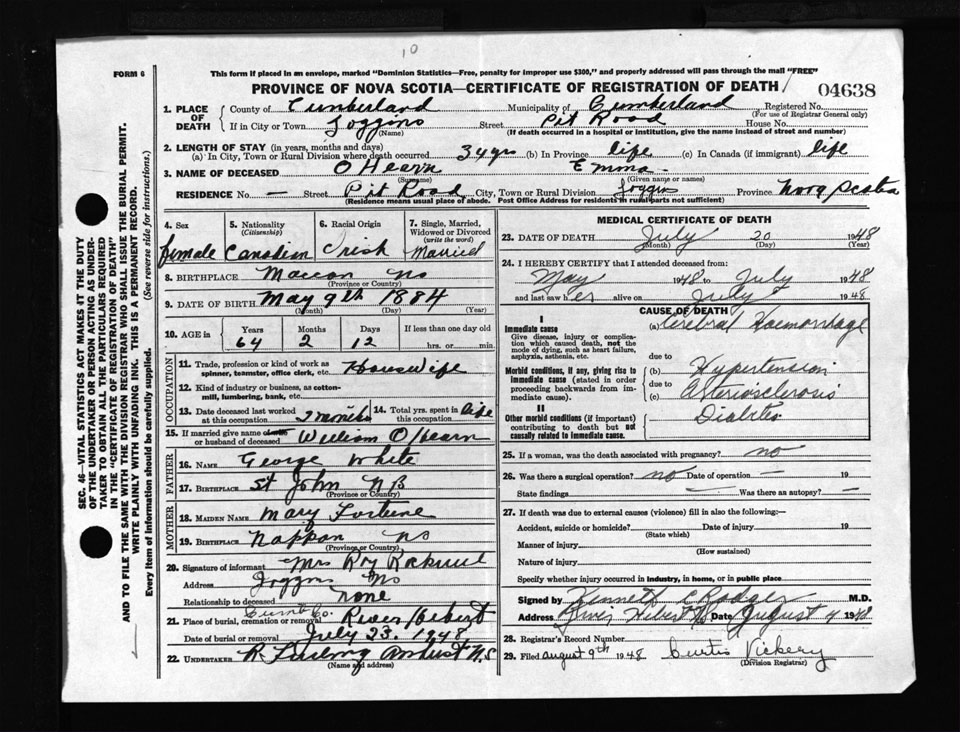 10
FORM 6
This form if placed in an envelope, marked "Dominion Statistics—Free, penalty for improper use $300," and properly addressed will pass through the mail "FREE"
PROVINCE OF NOVA SCOTIA—CERTIFICATE OF REGISTRATION OF DEATH
04638
1. PLACE OF DEATH
County of Cumberland Municipality of Cumberland Registered No.
(For use of Registrar General only)
If in City or Town Joggins Street Pit Road House No.
(Name) (If death occurred in a hospital or institution, give the name instead of street and number)
2. LENGTH OF STAY (in years, months and days)
(a) In City, Town or Rural Division where death occurred 34 yrs (b) In Province life (c) In Canada (if immigrant) life
3. NAME OF DECEASED O'Hearn Emma
(Surname) (Given name or names)
RESIDENCE No. — Street Pit Road City, Town or Rural Division Joggins Province Nova Scotia
(Residence means usual place of abode. Post Office Address for residents in rural parts not sufficient)
4. Sex female
5. Nationality (Citizenship) Canadian
6. Racial Origin Irish
7. Single, Married, Widowed or Divorced (write the word) Married
8. BIRTHPLACE Maccan NS
(Province or Country)
9. DATE OF BIRTH May 9th 1884
(Month) (Day) (Year)
10. AGE in Years Months Days If less than one day old
64 2 12 hrs. or min.
OCCUPATION
11. Trade, profession or kind of work as spinner, teamster, office clerk, etc. Housewife
12. Kind of industry or business, as cotton-mill, lumbering, bank, etc.
13. Date deceased last worked at this occupation 2 months
14. Total yrs. spent in this occupation life
15. If married give name of wife or husband of deceased William O'Hearn
FATHER
16. NAME George White
17. BIRTHPLACE St John NB
(Province or Country)
MOTHER
18. MAIDEN NAME Mary Fortune
19. BIRTHPLACE Nappan NS
(Province or Country)
20. Signature of informant Mrs Roy
Address Joggins NS
Relationship to deceased none
Cumb Co.
21. Place of burial, cremation or removal River Hebert
Date of burial or removal July 23. 1948
22. UNDERTAKER R Amherst N.S
(Name and address)
MEDICAL CERTIFICATE OF DEATH
23. DATE OF DEATH July 20 1948
(Month) (Day) (Year)
24. I HEREBY CERTIFY that I attended deceased from:
May 1948 to July 1948
and last saw her alive on July 1948
CAUSE OF DEATH
I
Immediate cause
Give disease, injury or complication which caused death, not the mode of dying, such as heart failure, asphyxia, asthenia, etc.
(a) Cerebral Haemorrhage
due to
Morbid conditions, if any, giving rise to immediate cause (stated in order proceeding backwards from immediate cause).
(b) Hypertension
due to
(c) Arteriosclerosis
II
Other morbid conditions (if important) contributing to death but not causally related to immediate cause.
Diabetes
25. If a woman, was the death associated with pregnancy? no
26. Was there a surgical operation? no Date of operation — 19
State findings — Was there an autopsy? —
27. If death was due to external causes (violence) fill in also the following:—
Accident, suicide or homicide? Date of injury 19
(State which)
Manner of injury
(How sustained)
Nature of injury
Specify whether injury occurred in industry, in home, or in public place
Signed by Kenneth C Rodger M.D.
Address River Hebert NS Date August 4 1948
28. Registrar's Record Number
29. Filed August 9th 1948 Curtis Vickery
(Division Registrar)
SEC. 46—VITAL STATISTICS ACT MAKES IT THE DUTY
OF THE UNDERTAKER OR PERSON ACTING AS UNDER-
TAKER TO OBTAIN ALL THE PARTICULARS REQUIRED
IN THE "CERTIFICATE OF REGISTRATION OF DEATH"
AND TO FILE THE SAME WITH THE DIVISION REGISTRAR WHO SHALL ISSUE THE BURIAL PERMIT.
WRITE PLAINLY WITH UNFADING INK. THIS IS A PERMANENT RECORD.
Every item of information should be carefully supplied. (See reverse side for instructions.)